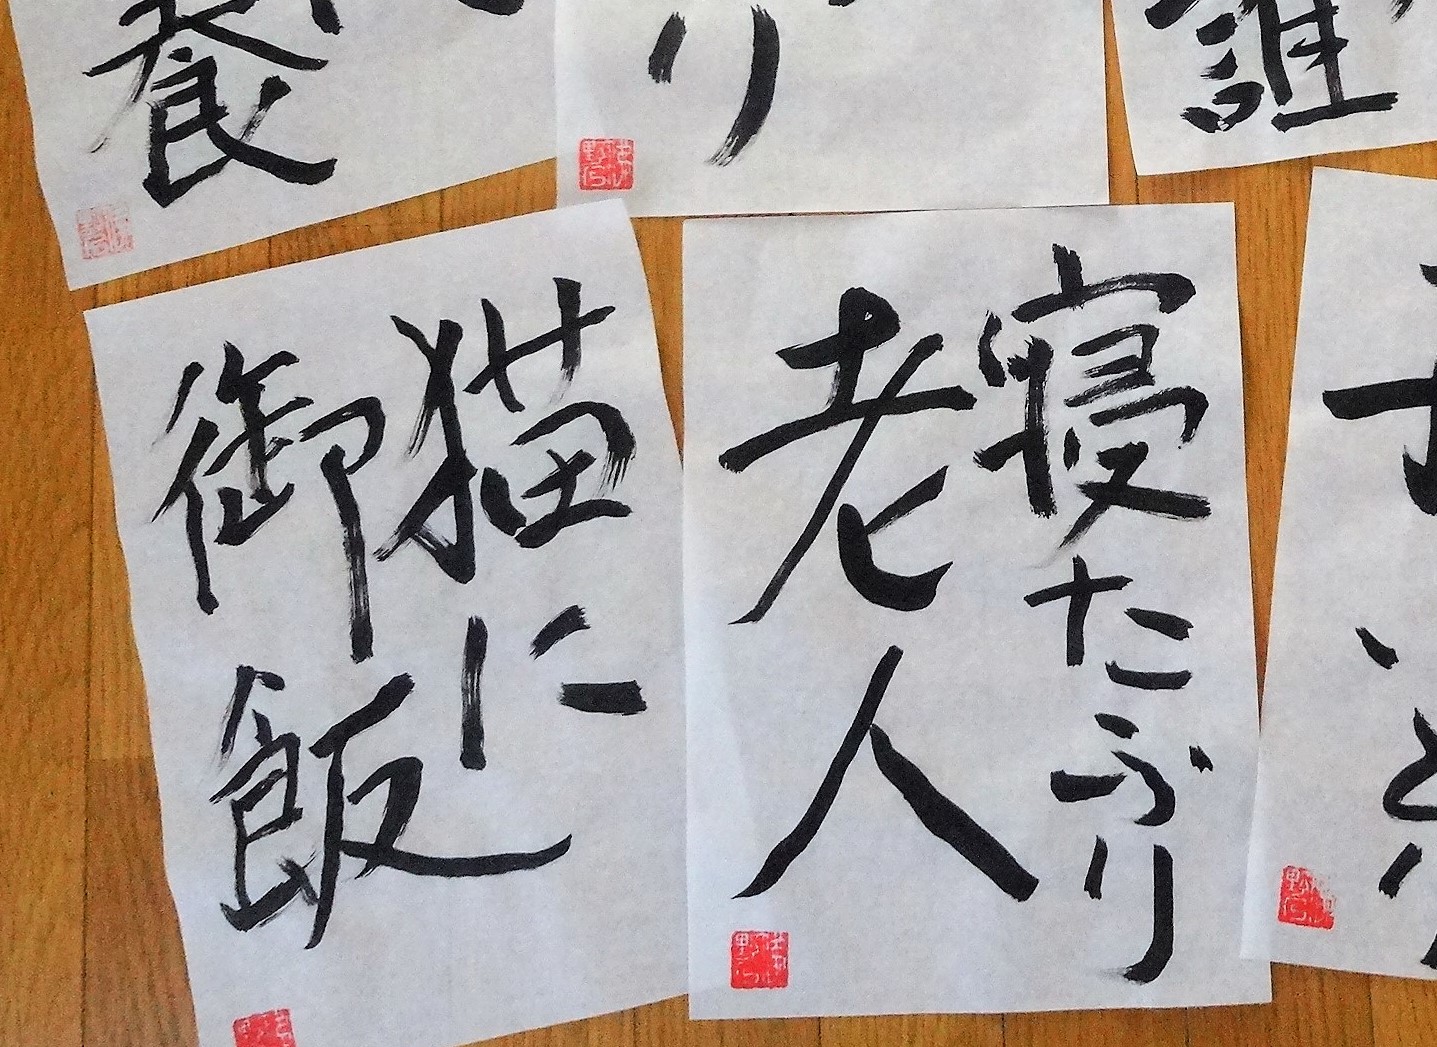 養
り
誰
寝たぶり
老人
猫に
御飯